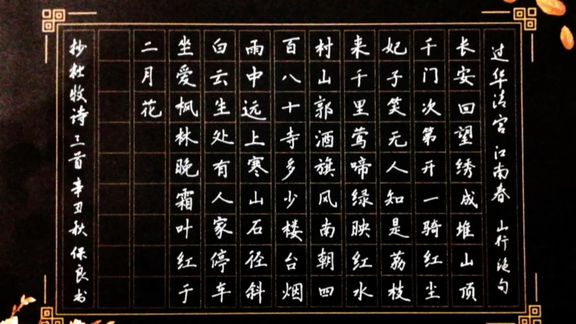 过华清宫 江南春 山行 绝句
长安回望绣成堆山顶
千门次第开一骑红尘
妃子笑无人知是荔枝
来千里莺啼绿映红水
村山郭酒旗风南朝四
百八十寺多少楼台烟
雨中远上寒山石径斜
白云生处有人家停车
坐爱枫林晚霜叶红于
二月花
抄杜牧诗三首 辛丑秋 保良书